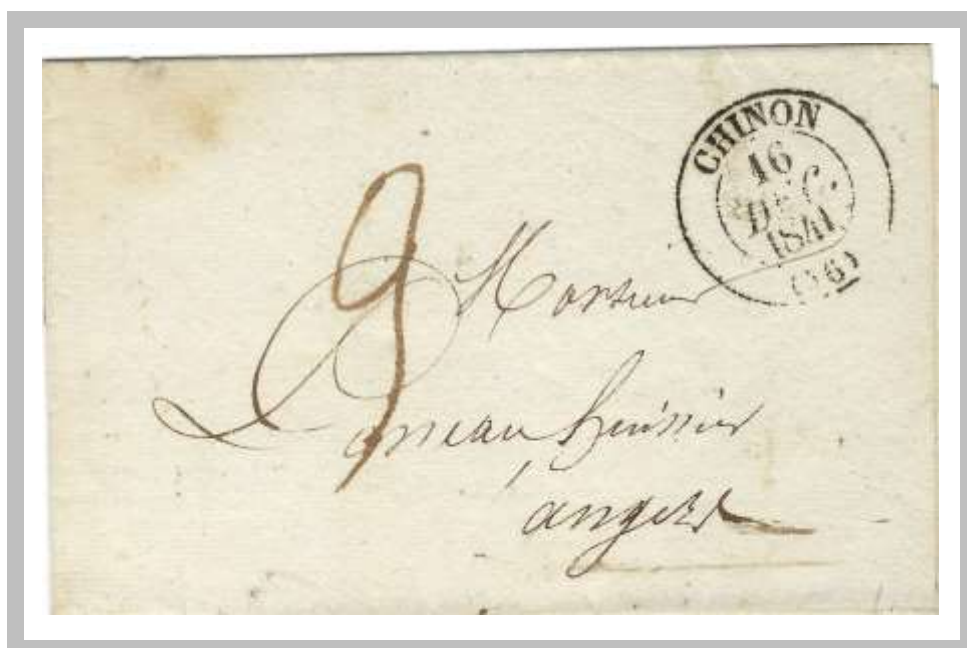 CHINON
16
DEC.
1841
(36)
9
Monsieur
huissier
à angers